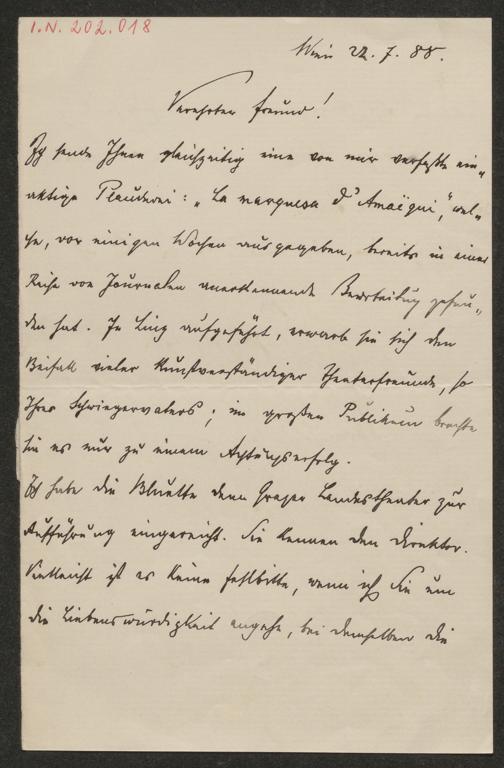 I.N. 202.018
Wien 22. 7. 88.
Verehrter Freund!
Ich sende Ihnen gleichzeitig eine von mir verfaßte ein„
aktige Plauderei: „La marquesa d'Amaëgui", wel„
che, vor einigen Wochen ausgegeben, bereits in einer
Reihe von Journalen anerkennende Beurteilung gefun„
den hat. In Linz aufgeführt, erwarb sie sich den
Beifall vieler kunstverständiger Theaterfreunde, so
Ihres Schwiegervaters; im großen Publikum brachte
sie es nur zu einem Achtungserfolg.
Ich habe die Bluette dem Grazer Landestheater zur
Aufführung eingereicht. Sie kennen den Direktor.
Vielleicht ist es keine Fehlbitte, wenn ich Sie um
die Liebenswürdigkeit angehe, bei demselben die